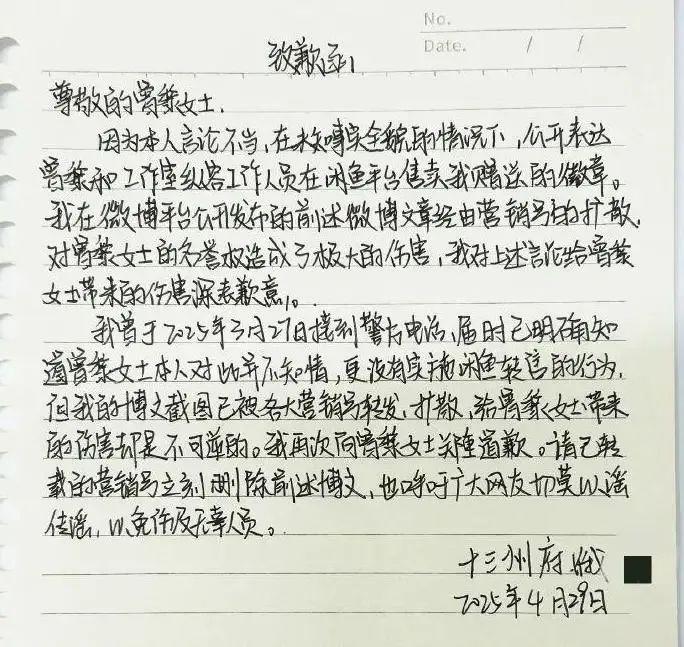 No.
Date. / /
致歉函
尊敬的曾黎女士,
因为本人言论不当,在未了解完全貌的情况下,公开表达
曾黎和工作室纵容工作人员在闲鱼平台售卖我赠送的徽章。
我在微博平台公开发布的前述微博文章经由营销号的扩散,
对曾黎女士的名誉权造成了极大的伤害,我对上述言论给曾黎
女士带来的伤害深表歉意。
我曾于2025年3月27日接到警方电话,届时已明确知
道曾黎女士本人对此并不知情,更没有实施闲鱼转售的行为,
但我的博文截图已被各大营销号转发、扩散,给曾黎女士带来
的伤害却是不可逆的。我再次向曾黎女士郑重道歉。请已转
载的营销号立刻删除前述博文,也呼吁广大网友切莫以谣
传谣,以免伤及无辜人员。
十三州府
2025年4月29日